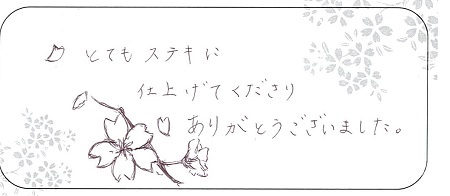 とてもステキに
仕上げてくださり
ありがとうございました。